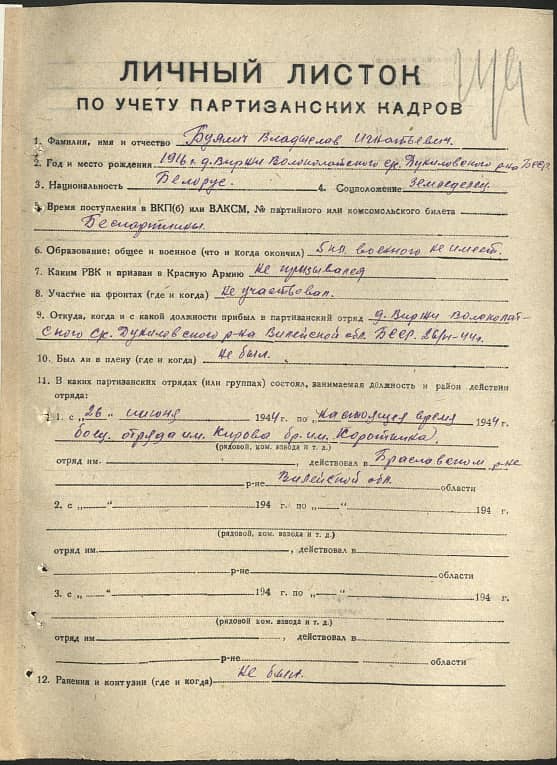 ЛИЧНЫЙ ЛИСТОК
ПО УЧЕТУ ПАРТИЗАНСКИХ КАДРОВ
1. Фамилия, имя и отчество Буялич Владыслав Игнатьевич.
2. Год и место рождения 1916 г. д. Виржи Волоколайского с/с. Дуниловского р-на БССР.
3. Национальность Белорус. 4. Соцположение земледелец
5. Время поступления в ВКП(б) или ВЛКСМ, № партийного или комсомольского билета
Беспартийный.
6. Образование: общее и военное (что и когда окончил) 5 кл. военного не имеет.
7. Каким РВК и призван в Красную Армию не призывался
8. Участие на фронтах (где и когда) не участвовал.
9. Откуда, когда и с какой должности прибыл в партизанский отряд д. Виржи
с/с. Дуниловского р-на Вилейской обл. БССР.
10. Был ли в плену (где и когда) не был.
11. В каких партизанских отрядах (или группах) состоял, занимаемая должность и район действия
отряда:
1. с „26" июня 1944 г. по настоящее время 1944 г.
боец отряда им. Кирова бр. им.
(рядовой, ком. взвода и т. д.)
отряд им. , действовал в Браславском р-не
р-не Вилейской обл. области
2. с „ " 194 г. по „ " 194 г.
(рядовой, ком. взвода и т. д.)
отряд им. , действовал в
р-не области
3. с „ " 194 г. по „ " 194 г.
(рядовой, ком. взвода и т. д.)
отряд им. , действовал в
р-не области
12. Ранения и контузии (где и когда) не был.